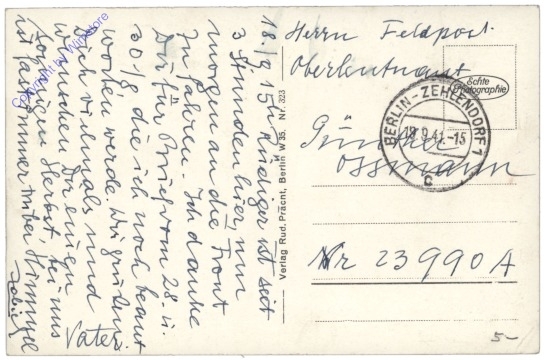 18./9. 15 h Rüdiger ist seit
3 Stunden hier, um
morgen an die Front
zu fahren. Ich danke
Dir für Brief vom 28. u.
30/8 die ich noch beant
worten werde. Wir grüßen
Dich vielmals und
wünschen Dir einen
sonnigen Herbst, bei uns
ist fast immer trüber Himmel
Vater
Verlag Rud. Pracht, Berlin W 35. Nr. 323
Herrn Feldpost.
Oberleutnant
Günther
Ossmann
Nr 23990 A
Echte
Photographie
BERLIN-ZEHLENDORF 1
18.9.41.-15
c
5-
Copyright by Winstore